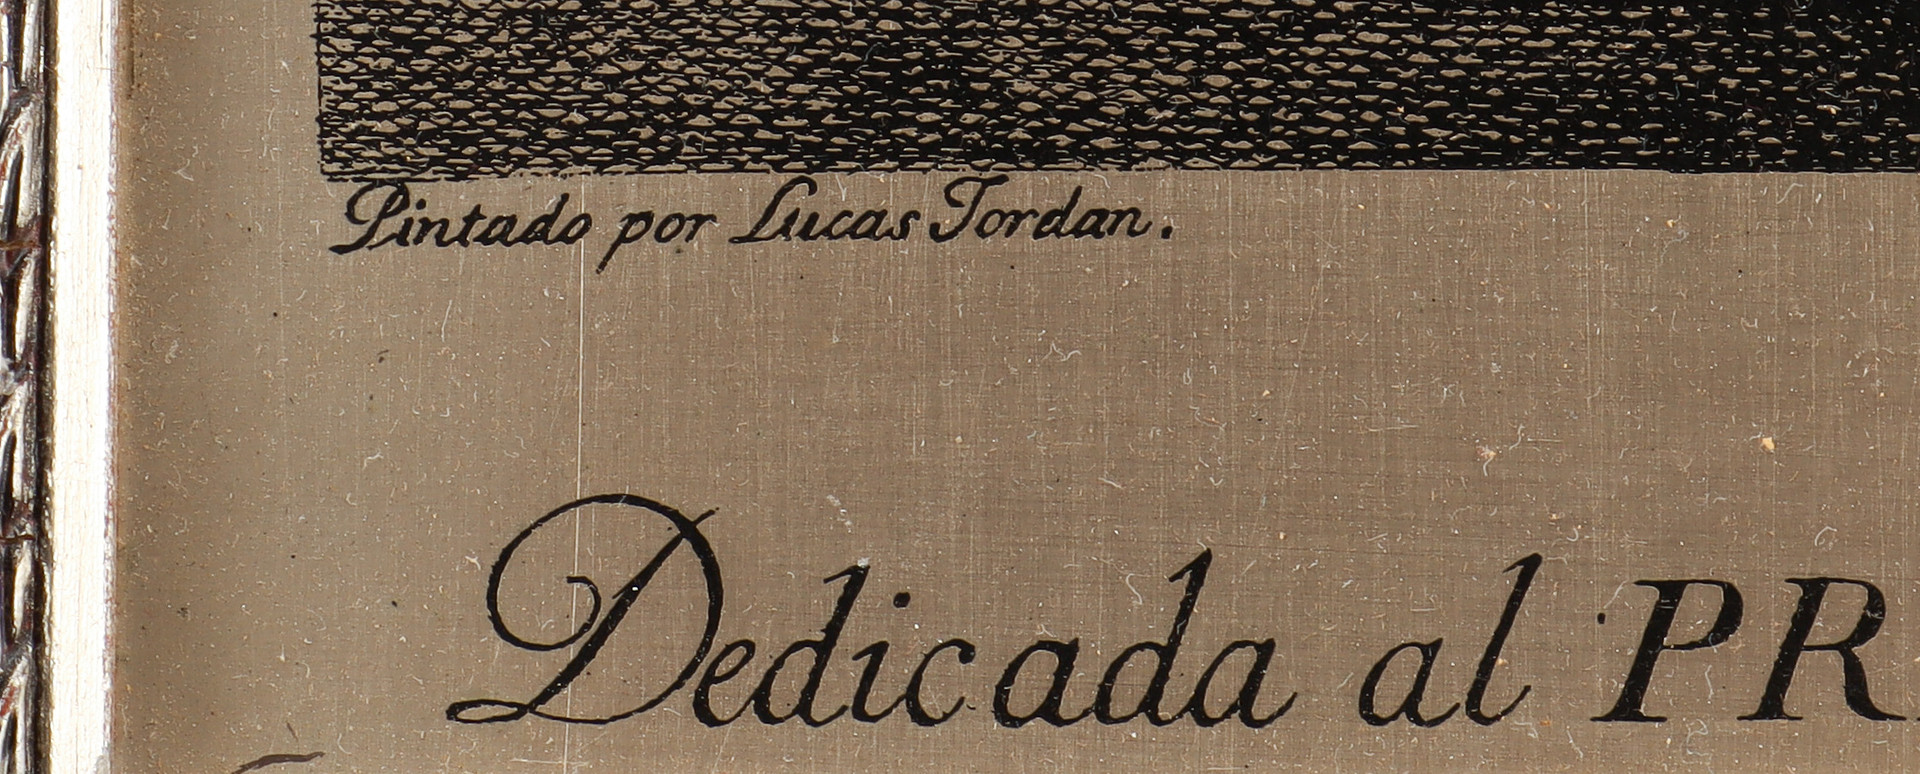 Pintado por Lucas Jordan.
Dedicada al PR